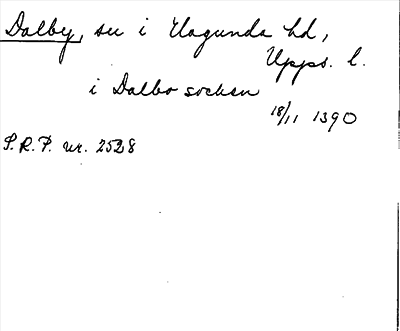 Dalby, su i Hagunda hd,
Upps. l.
i Dalbo socken
18/11 1390
S.R.P. nr. 2528